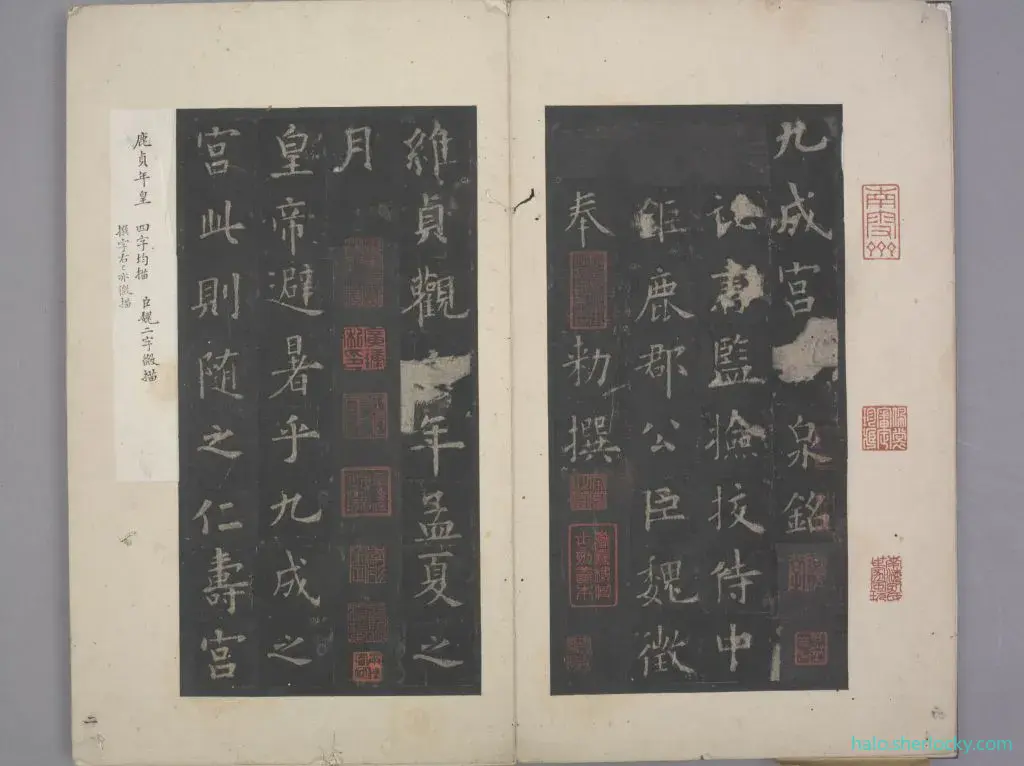 九成宮泉銘
祕書監撿挍侍中
鉅鹿郡公臣魏徵
奉
勑撰
維貞觀六年孟夏之
月
皇帝避暑乎九成之
宮此則随之仁壽宮
鹿貞年皇 四字均描 臣魏二字微描
撰字右亦微描
二
halo.sherlocky.com